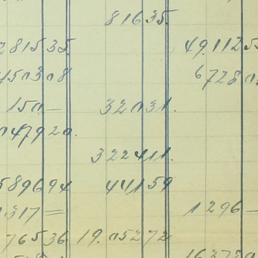 81635.
281535. 49.1125
450308 6728
150— 32031.
047920.
322411.
589694 44159
317= 1296—
76536 19.05272